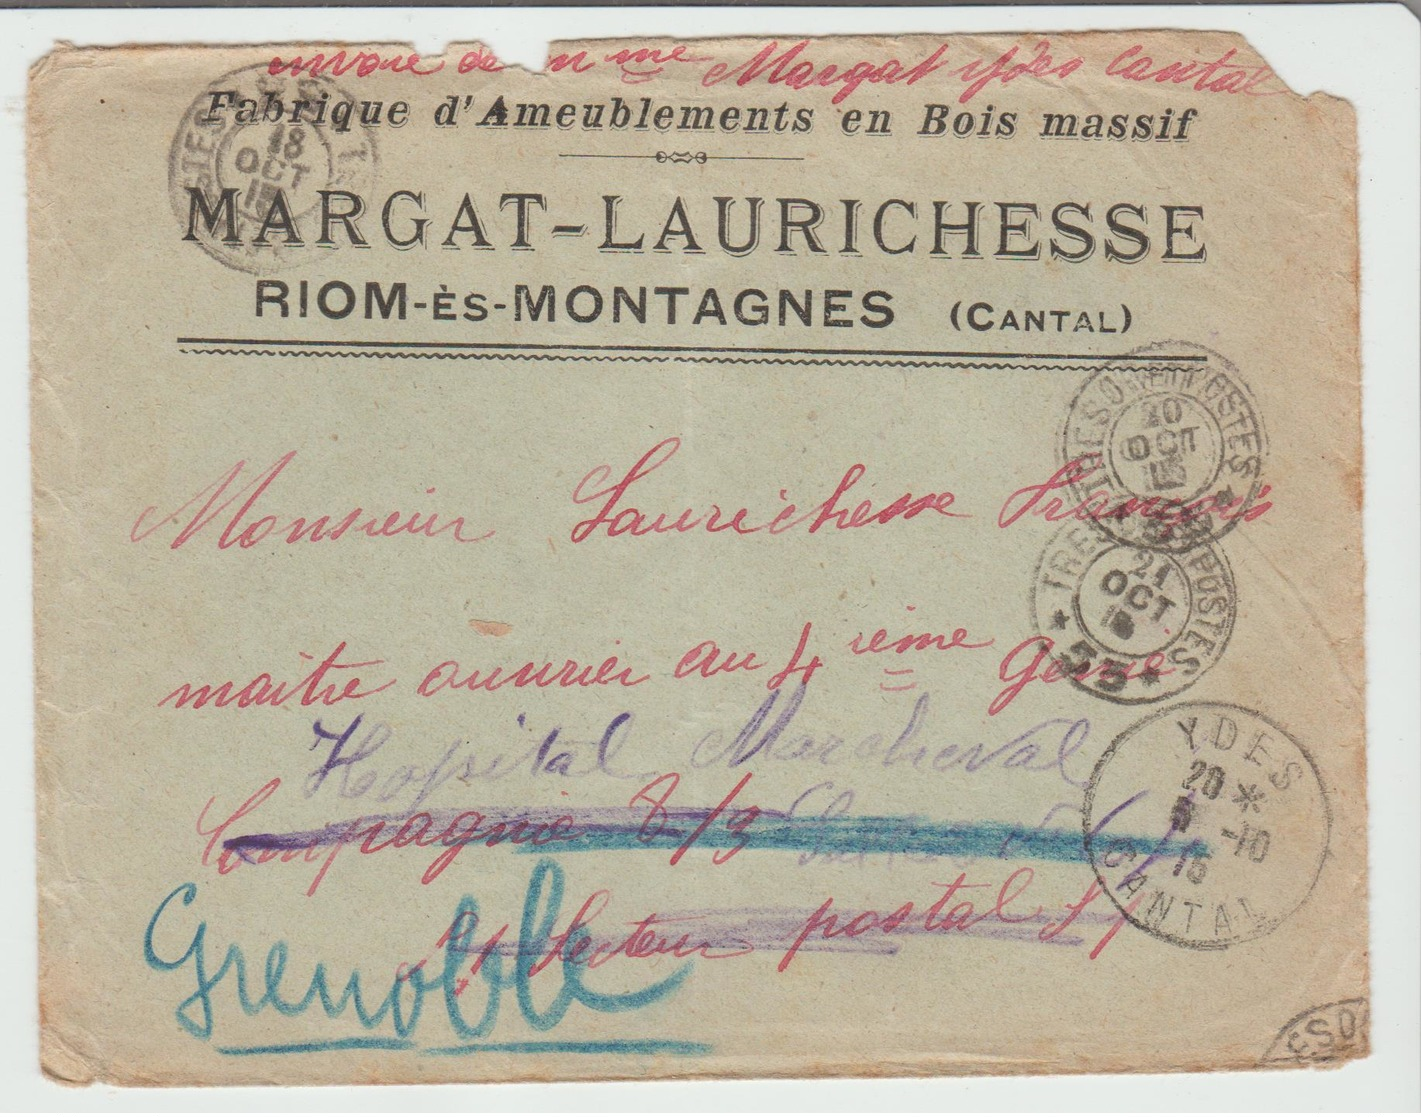 envoie de mme Margat Ydes Cantal
Fabrique d'Ameublements en Bois massif
MARGAT-LAURICHESSE
RIOM-ÈS-MONTAGNES (CANTAL)
18
OCT
15
TRESOR ET POSTES
20
OCT
15
Monsieur Laurichesse François
TRESOR ET POSTES
21
OCT
15
* 55 *
maitre ouvrier au 4 ième Génie
Hopital Marcheval
Compagnie 8/3
YDES
20 *
5 -10
15
CANTAL
Secteur postal
Grenoble
ESO